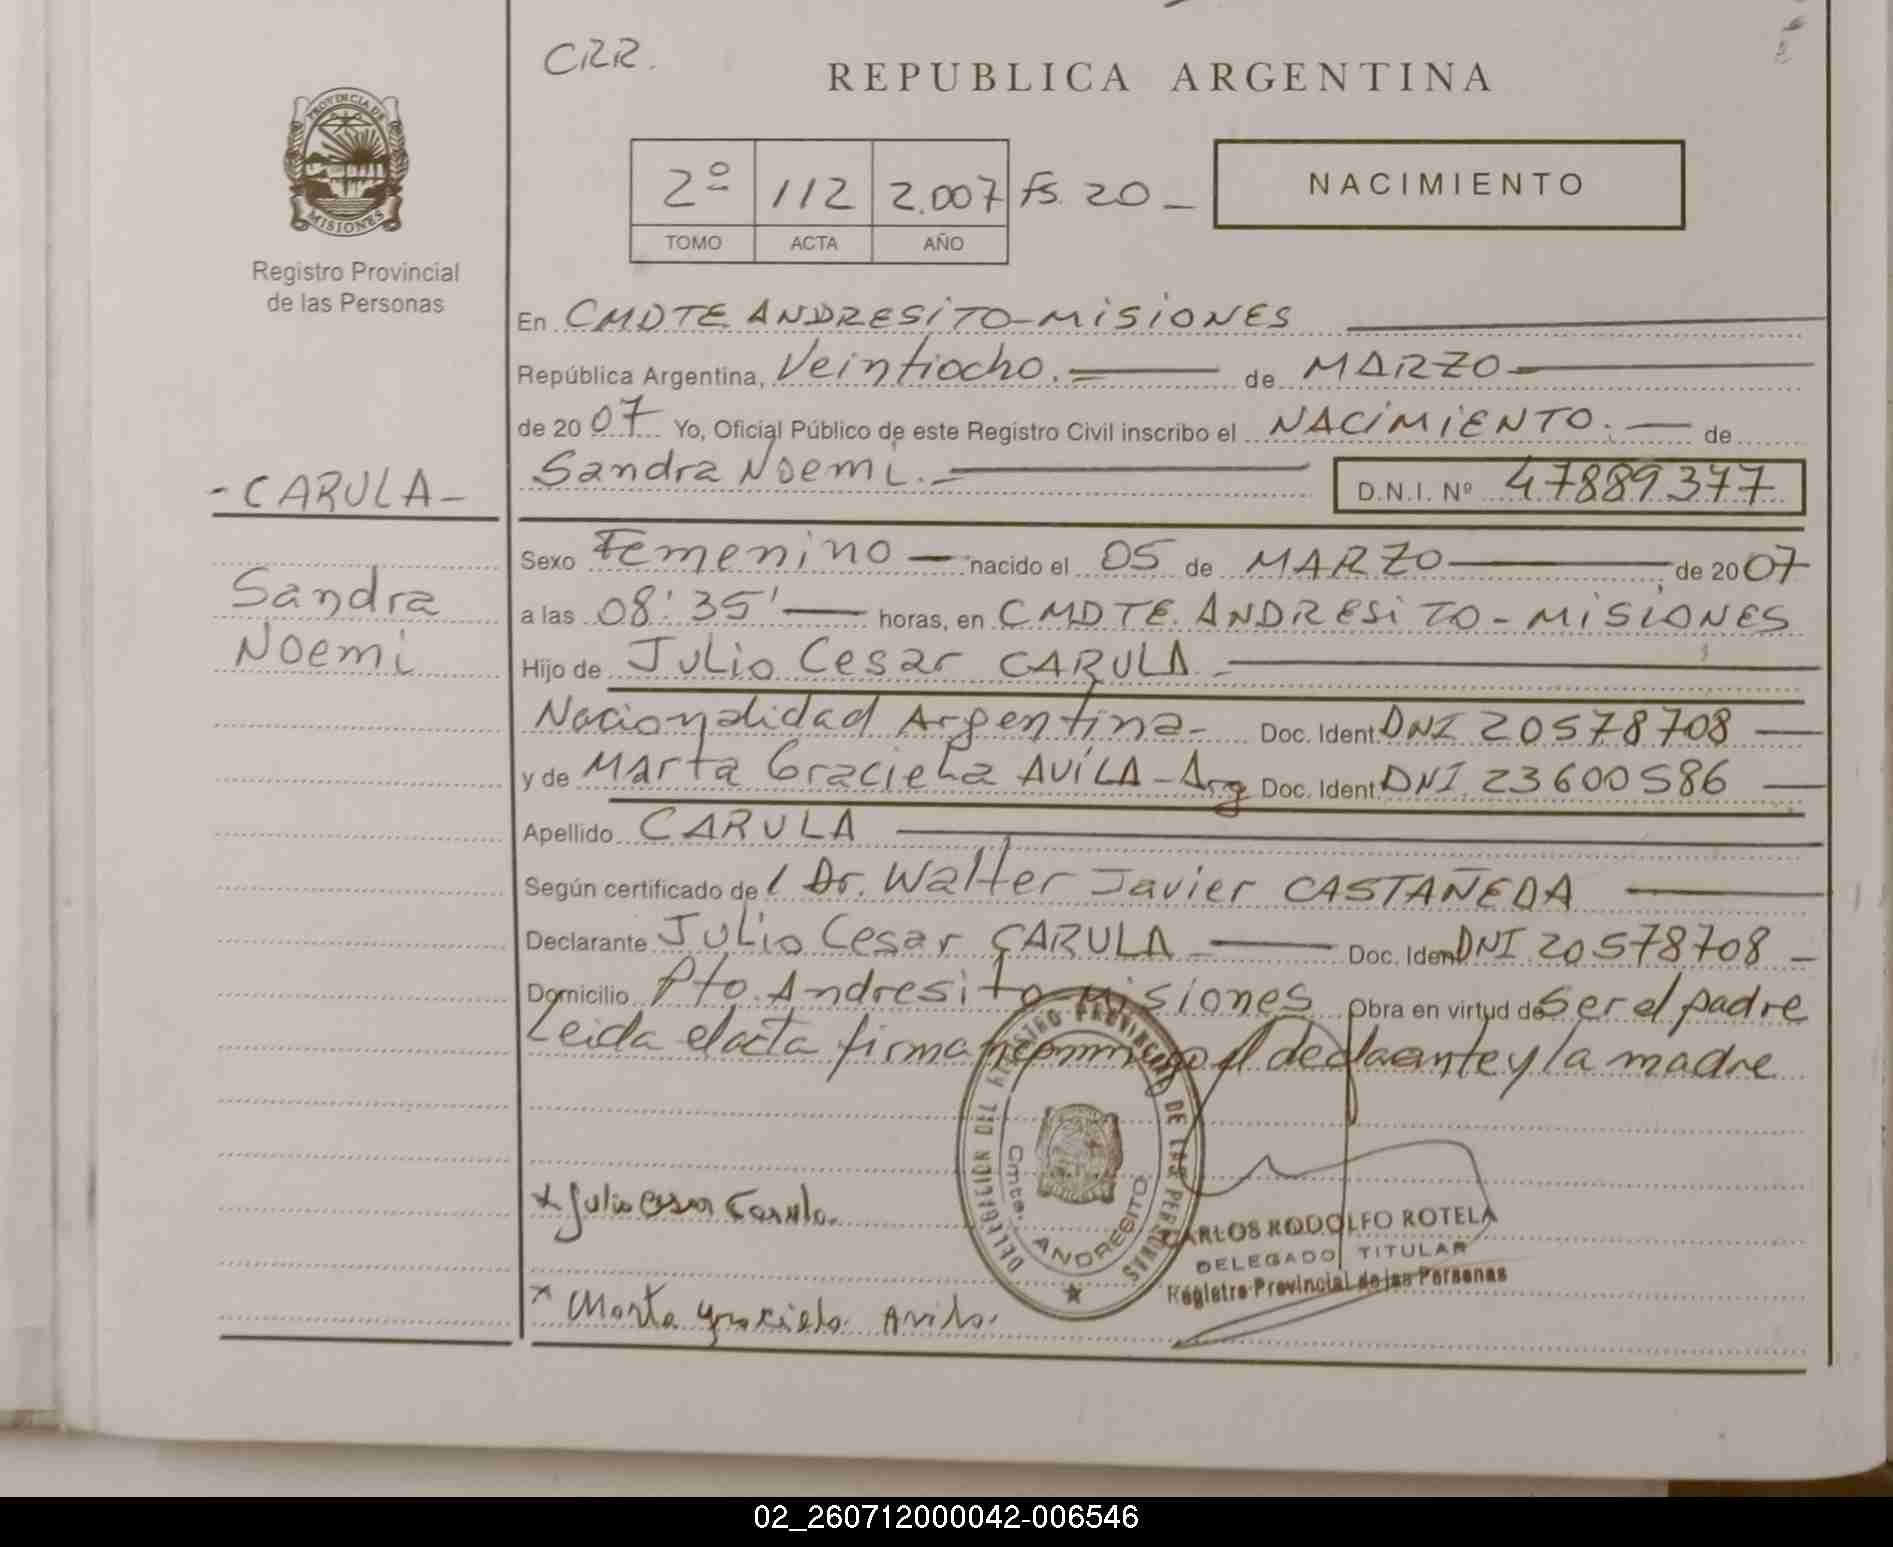 CRR.
REPUBLICA ARGENTINA
PROVINCIA DE MISIONES
Registro Provincial
de las Personas
2º 112 2.007 Fs. 20_
TOMO ACTA AÑO
NACIMIENTO
En CMDTE ANDRESiTO-MisiONES
República Argentina, Veintiocho. de MARZO
de 2007 Yo, Oficial Público de este Registro Civil inscribo el NACiMiENTO. de
Sandra Noemi. D.N.I. Nº 47889377
-CARULA-
Sandra
Noemi
Sexo Femenino nacido el 05 de MARZO de 2007
a las 08'35' horas, en CMDTE ANDRESiTO-MiSiONES
Hijo de Julio Cesar CARULA
Nacionalidad Argentina- Doc. Ident. DNI 20578708
y de Marta Graciela AVILA-Arg Doc. Ident. DNI 23600586
Apellido CARULA
Según certificado del Dr. Walter Javier CASTAÑEDA
Declarante Julio Cesar CARULA Doc. Iden DNI 20578708
Domicilio Pto. Andresito Misiones Obra en virtud de Ser el padre
Leida el acta firma conmigo el declarante y la madre
x Julio Cesar Carula
x Marta Graciela Avila
DELEGACION DEL REGISTRO PROVINCIAL DE LAS PERSONAS
Cmte. ANDRESITO
CARLOS RODOLFO ROTELA
DELEGADO TITULAR
Registro Provincial de las Personas
02_260712000042-006546